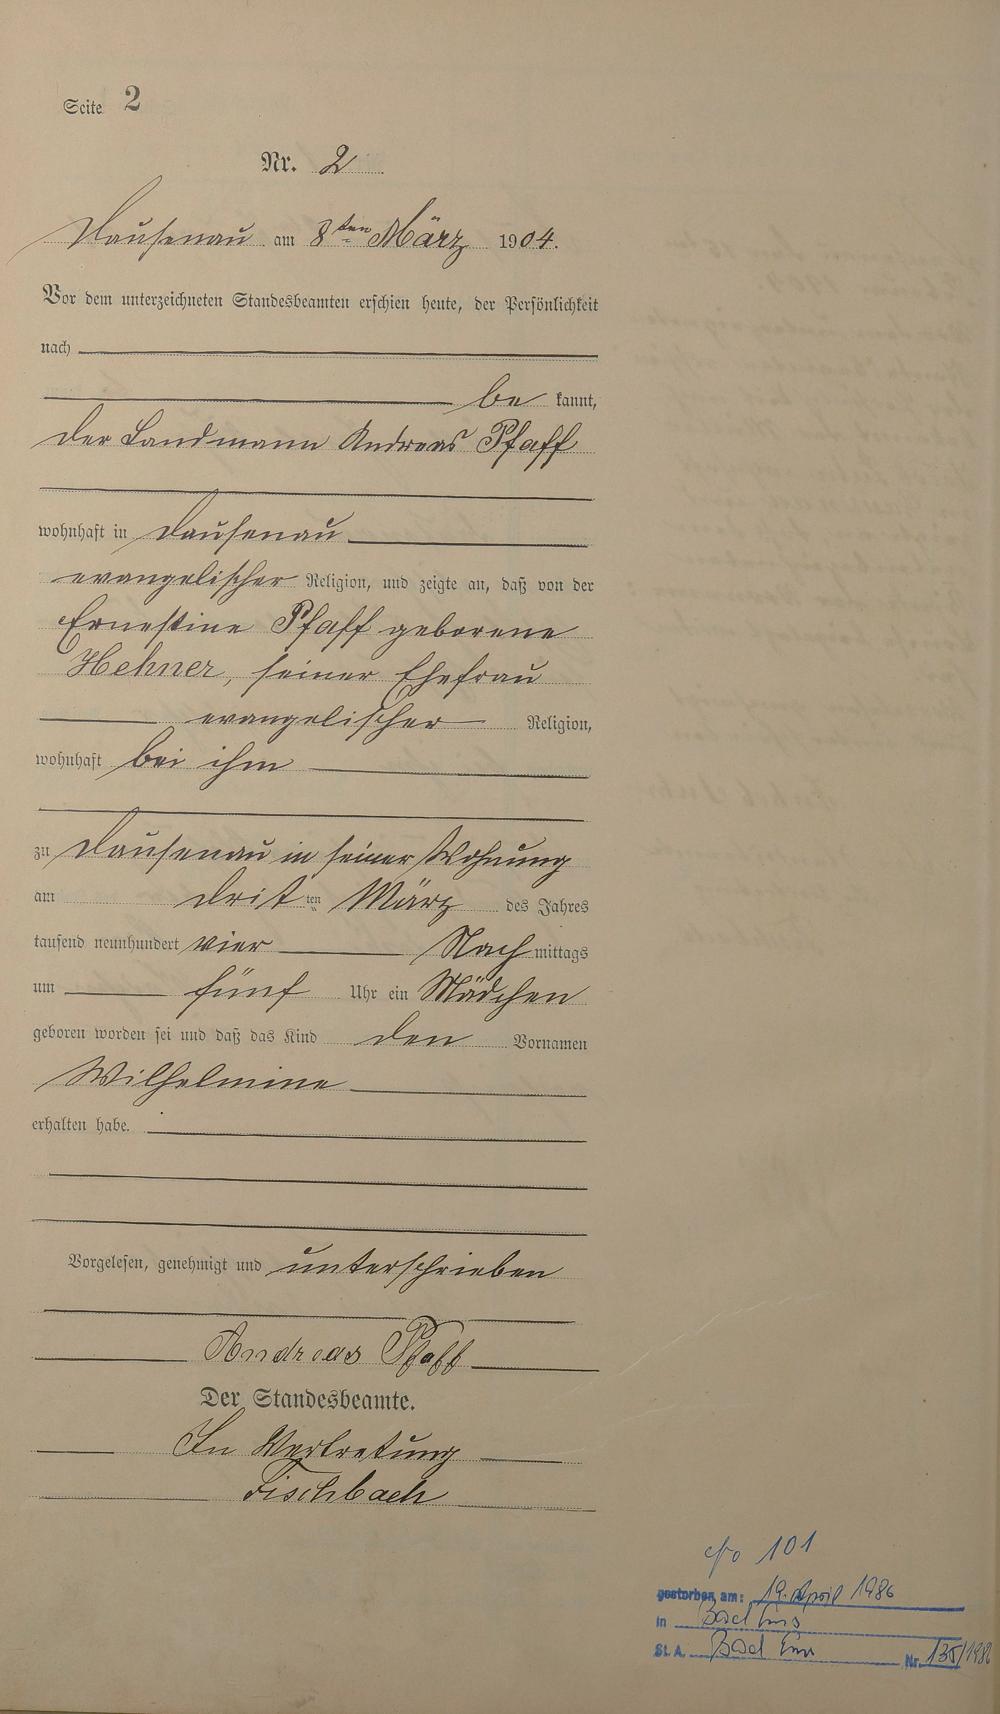 Seite 2
Nr. 2
Dausenau am 8ten März 1904.
Vor dem unterzeichneten Standesbeamten erschien heute, der Persönlichkeit
nach
be kannt,
der Landmann Andreas Pfaff
wohnhaft in Dausenau
evangelischer Religion, und zeigte an, daß von der
Ernestine Pfaff geborene
Hehner, seiner Ehefrau
evangelischer Religion,
wohnhaft bei ihm
zu Dausenau in seiner Wohnung
am dritten März des Jahres
tausend neunhundert vier Nachmittags
um fünf Uhr ein Mädchen
geboren worden sei und daß das Kind den Vornamen
Wilhelmine
erhalten habe.
Vorgelesen, genehmigt und unterschrieben
Andreas Pfaff
Der Standesbeamte.
In Vertretung
Fischbach
101
gestorben am: 19. April 1986
in Bad Ems
St. A. Bad Ems Nr. 135/1986